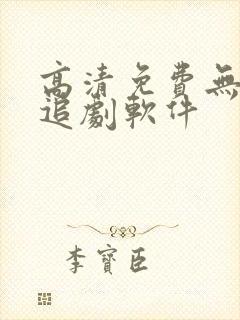 高清免费無
追劇軟件
李寶臣